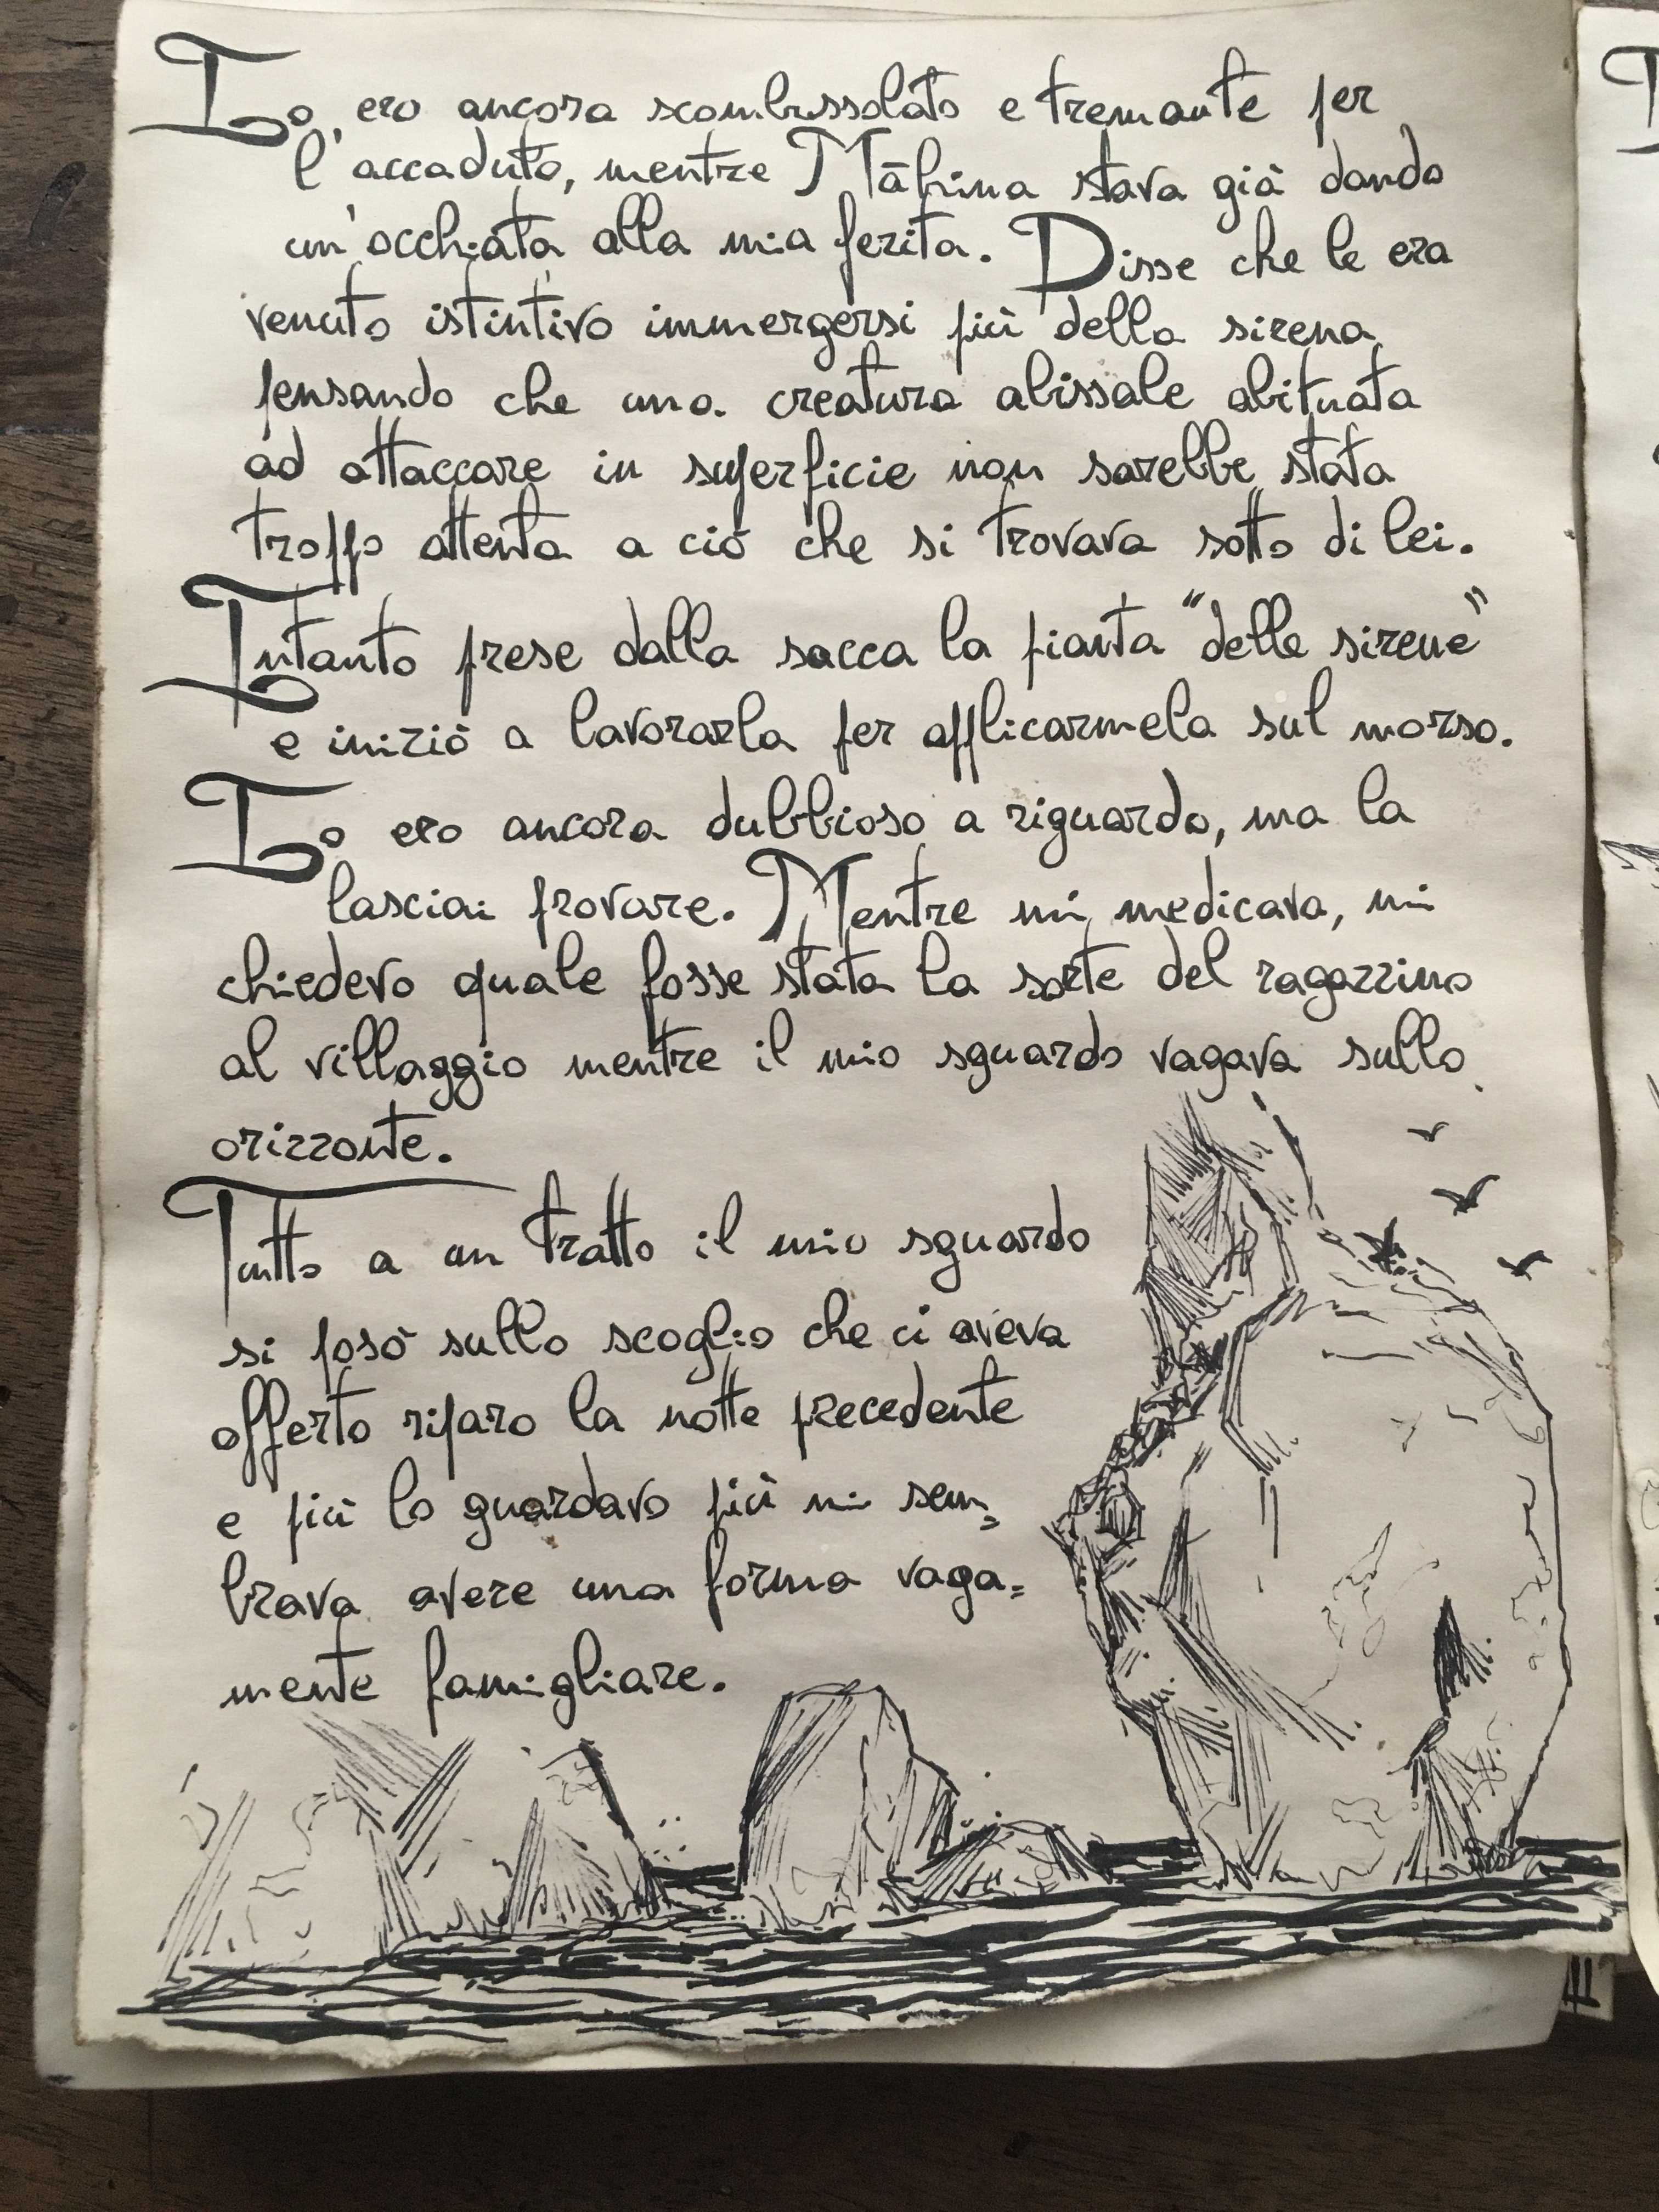 Io ero ancora scombussolato e tremante per
l'accaduto, mentre Māhina stava già dando
un'occhiata alla mia ferita. Disse che le era
venuto istintivo immergersi più della sirena
pensando che una creatura abissale abituata
ad attaccare in superficie non sarebbe stata
troppo attenta a ciò che si trovava sotto di lei.
Intanto prese dalla sacca la pianta "delle sirene"
e iniziò a lavorarla per applicarmela sul morso.
Io ero ancora dubbioso a riguardo, ma la
lasciai provare. Mentre mi medicava, mi
chiedevo quale fosse stata la sorte del ragazzino
al villaggio mentre il mio sguardo vagava sullo
orizzonte.
Tutto a un tratto il mio sguardo
si posò sullo scoglio che ci aveva
offerto riparo la notte precedente
e più lo guardavo più mi sem=
brava avere una forma vaga=
mente famigliare.